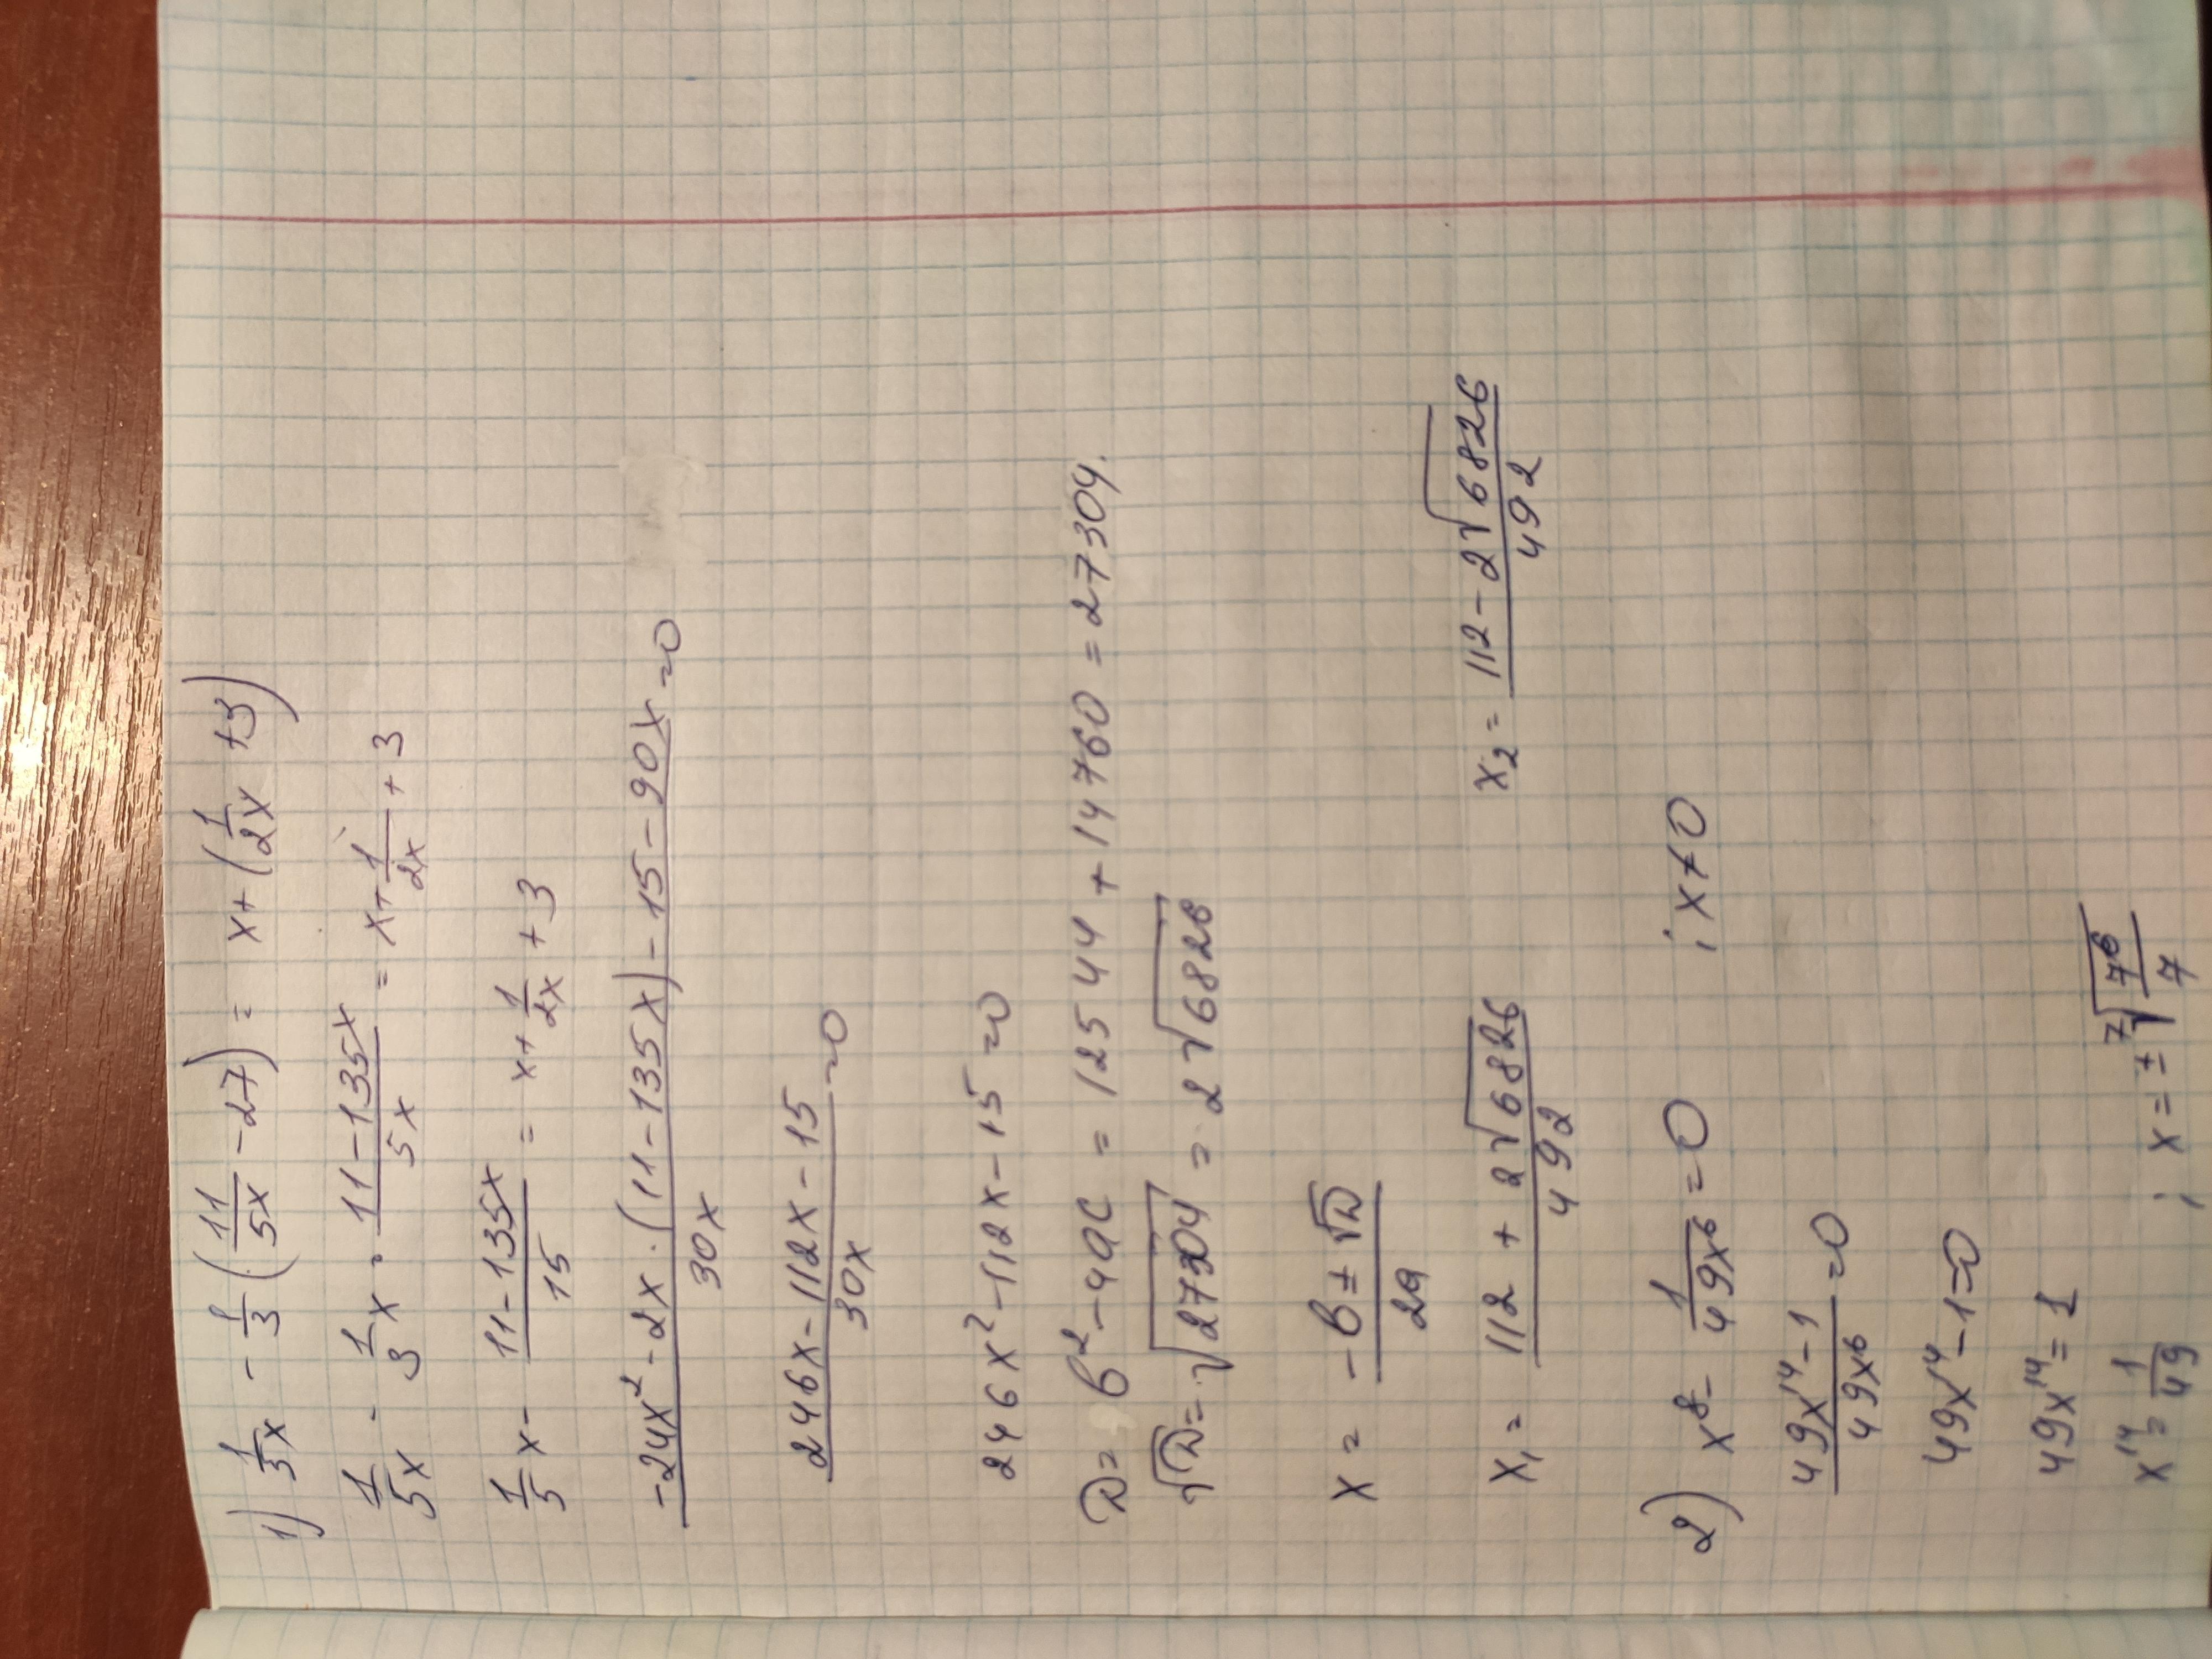 1) 1/5 x - 1/3 (11/5x - 27) = x + (1/2x + 3)
1/5 x - 1/3 x · (11 - 135x)/5x = x + 1/2x + 3
1/5 x - (11 - 135x)/15 = x + 1/2x + 3
(-24x² - 2x · (11 - 135x) - 15 - 90x)/30x = 0
(246x - 112x - 15)/30x = 0
246x² - 112x - 15 = 0
D = b² - 4ac = 12544 + 14760 = 27304.
√D = √27304 = 2√6826
x = (-b ± √D)/2a
x₁ = (112 + 2√6826)/492 x₂ = (112 - 2√6826)/492
2) x⁸ - 1/49x⁶ = 0 ; x ≠ 0
(49x¹⁴ - 1)/49x⁶ = 0
49x¹⁴ - 1 = 0
49x¹⁴ = 1
x¹⁴ = 1/49 ; x = ± ⁷√7⁶/7